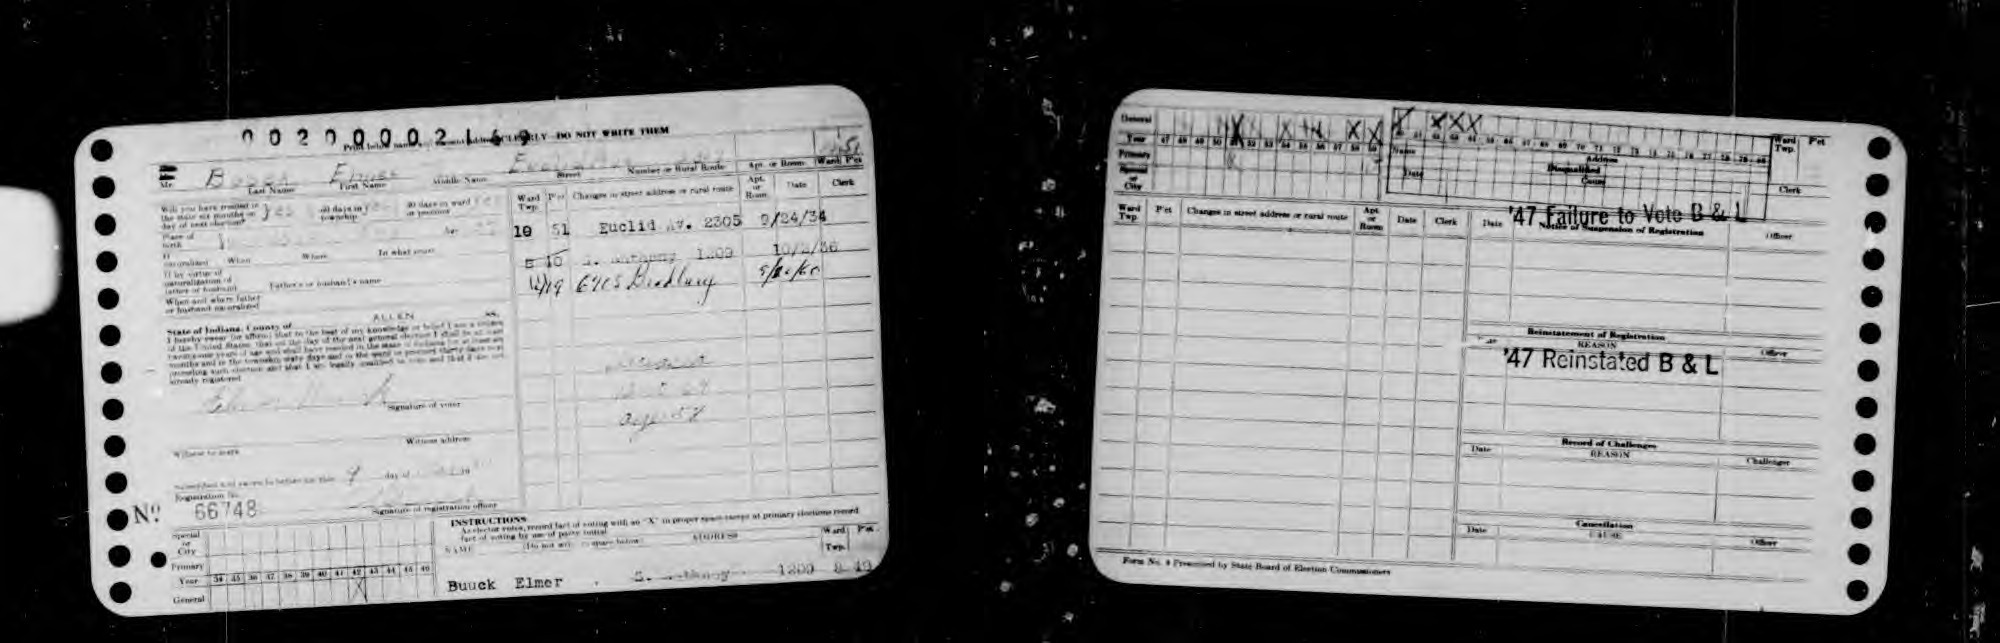 002000002169
Print below name and present address CLEARLY—DO NOT WRITE THEM
Mr. Buuck Elmer
Last Name First Name Middle Name Street Number or Rural Route Apt. or Room Ward P'ct
Will you have resided in the state six months on day of next election? yes 60 days in township yes 30 days in ward or precinct yes
Place of birth Age
If naturalized When Where In what court
If by virtue of naturalization of father or husband Father's or husband's name
When and where father or husband naturalized
State of Indiana, County of ALLEN SS.
I hereby swear (or affirm) that to the best of my knowledge or belief I am a citizen
of the United States, that on the day of the next general election I shall be at least
twenty-one years of age and shall have resided in the state of Indiana for at least six
months and in the township sixty days and in the ward or precinct thirty days next
preceding such election and that I am legally qualified to vote and that I am not
already registered
Signature of voter
Witness to mark Witness address
Subscribed and sworn to before me this 9 day of 19
Registration No.
No 66748
Signature of registration officer
Ward Twp. P'ct Changes in street address or rural route Apt. or Room Date Clerk
10 51 Euclid Av. 2305 9/24/34
8 10 S. Anthony 1209 10/2/36
age 58
Special or City
Primary
Year 34 35 36 37 38 39 40 41 42 43 44 45 46
General X
INSTRUCTIONS
As elector votes, record fact of voting with an "X" in proper space except at primary elections record
fact of voting by use of party initial
NAME (Do not write in space below) ADDRESS Ward Twp. P'ct
Buuck Elmer S. Anthony 1209 8 10
General
Year 47 48 49 50 51 52 53 54 55 56 57 58 59 60 61 62 63 64 65 66 67 68 69 70 71 72 73 74 75 76 77 78 79 80
Primary
Special or City
Name Address
Date Disqualified Cause
Ward Twp. P'ct
Clerk
Ward Twp. P'ct Changes in street address or rural route Apt. or Room Date Clerk
'47 Failure to Vote B & L
Date Notice of Suspension of Registration Officer
Reinstatement of Registration
Date REASON Officer
'47 Reinstated B & L
Record of Challenges
Date REASON Challenger
Cancellation
Date CAUSE Officer
Form No. 4 Prescribed by State Board of Election Commissioners